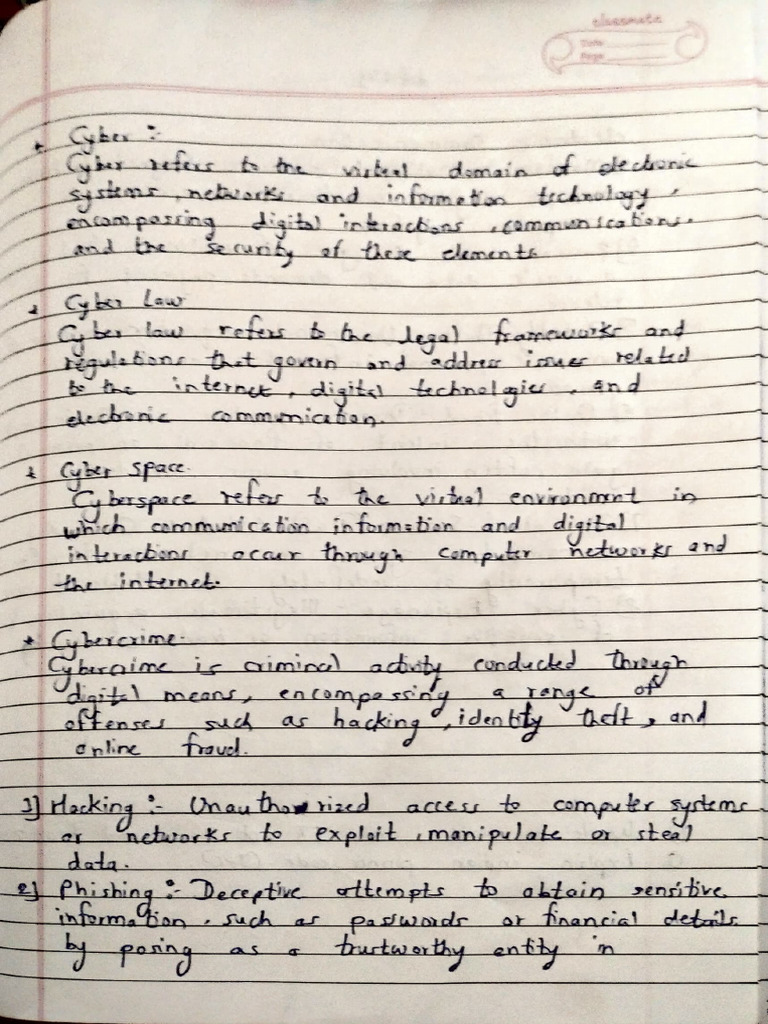 classmate
Date
Page
* Cyber :-
Cyber refers to the virtual domain of electronic
systems, networks and information technology,
encompassing digital interactions, communications.
and the security of these elements.
* Cyber Law
Cyber law refers to the legal frameworks and
regulations that govern and address issues related
to the internet, digital technologies, and
electronic communication.
* Cyber space.
Cyberspace refers to the virtual environment in
which communication information and digital
interactions occur through computer networks and
the internet.
* Cybercrime.
Cybercrime is criminal activity conducted through
digital means, encompassing a range of
offenses such as hacking, identity theft, and
online fraud.
1] Hacking :- Unauthorized access to computer systems
or networks to exploit, manipulate or steal
data.
2] Phishing :- Deceptive attempts to obtain sensitive
information, such as passwords or financial details.
by posing as a trustworthy entity in